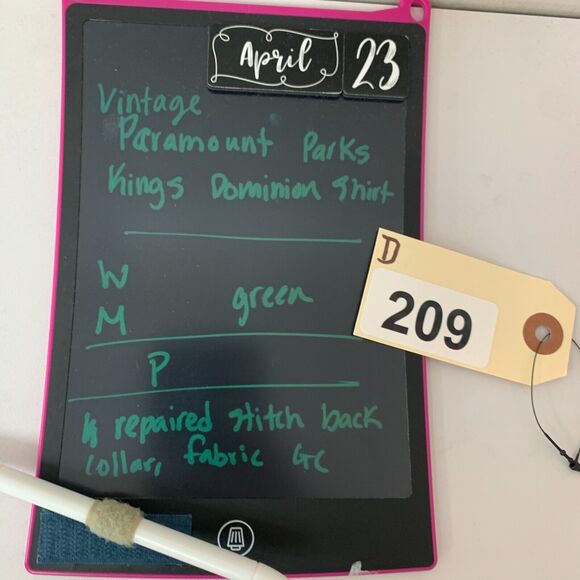 April 23
Vintage
Paramount Parks
Kings Dominion Shirt
W
M green
P
repaired stitch back
collar, fabric GC
D
209